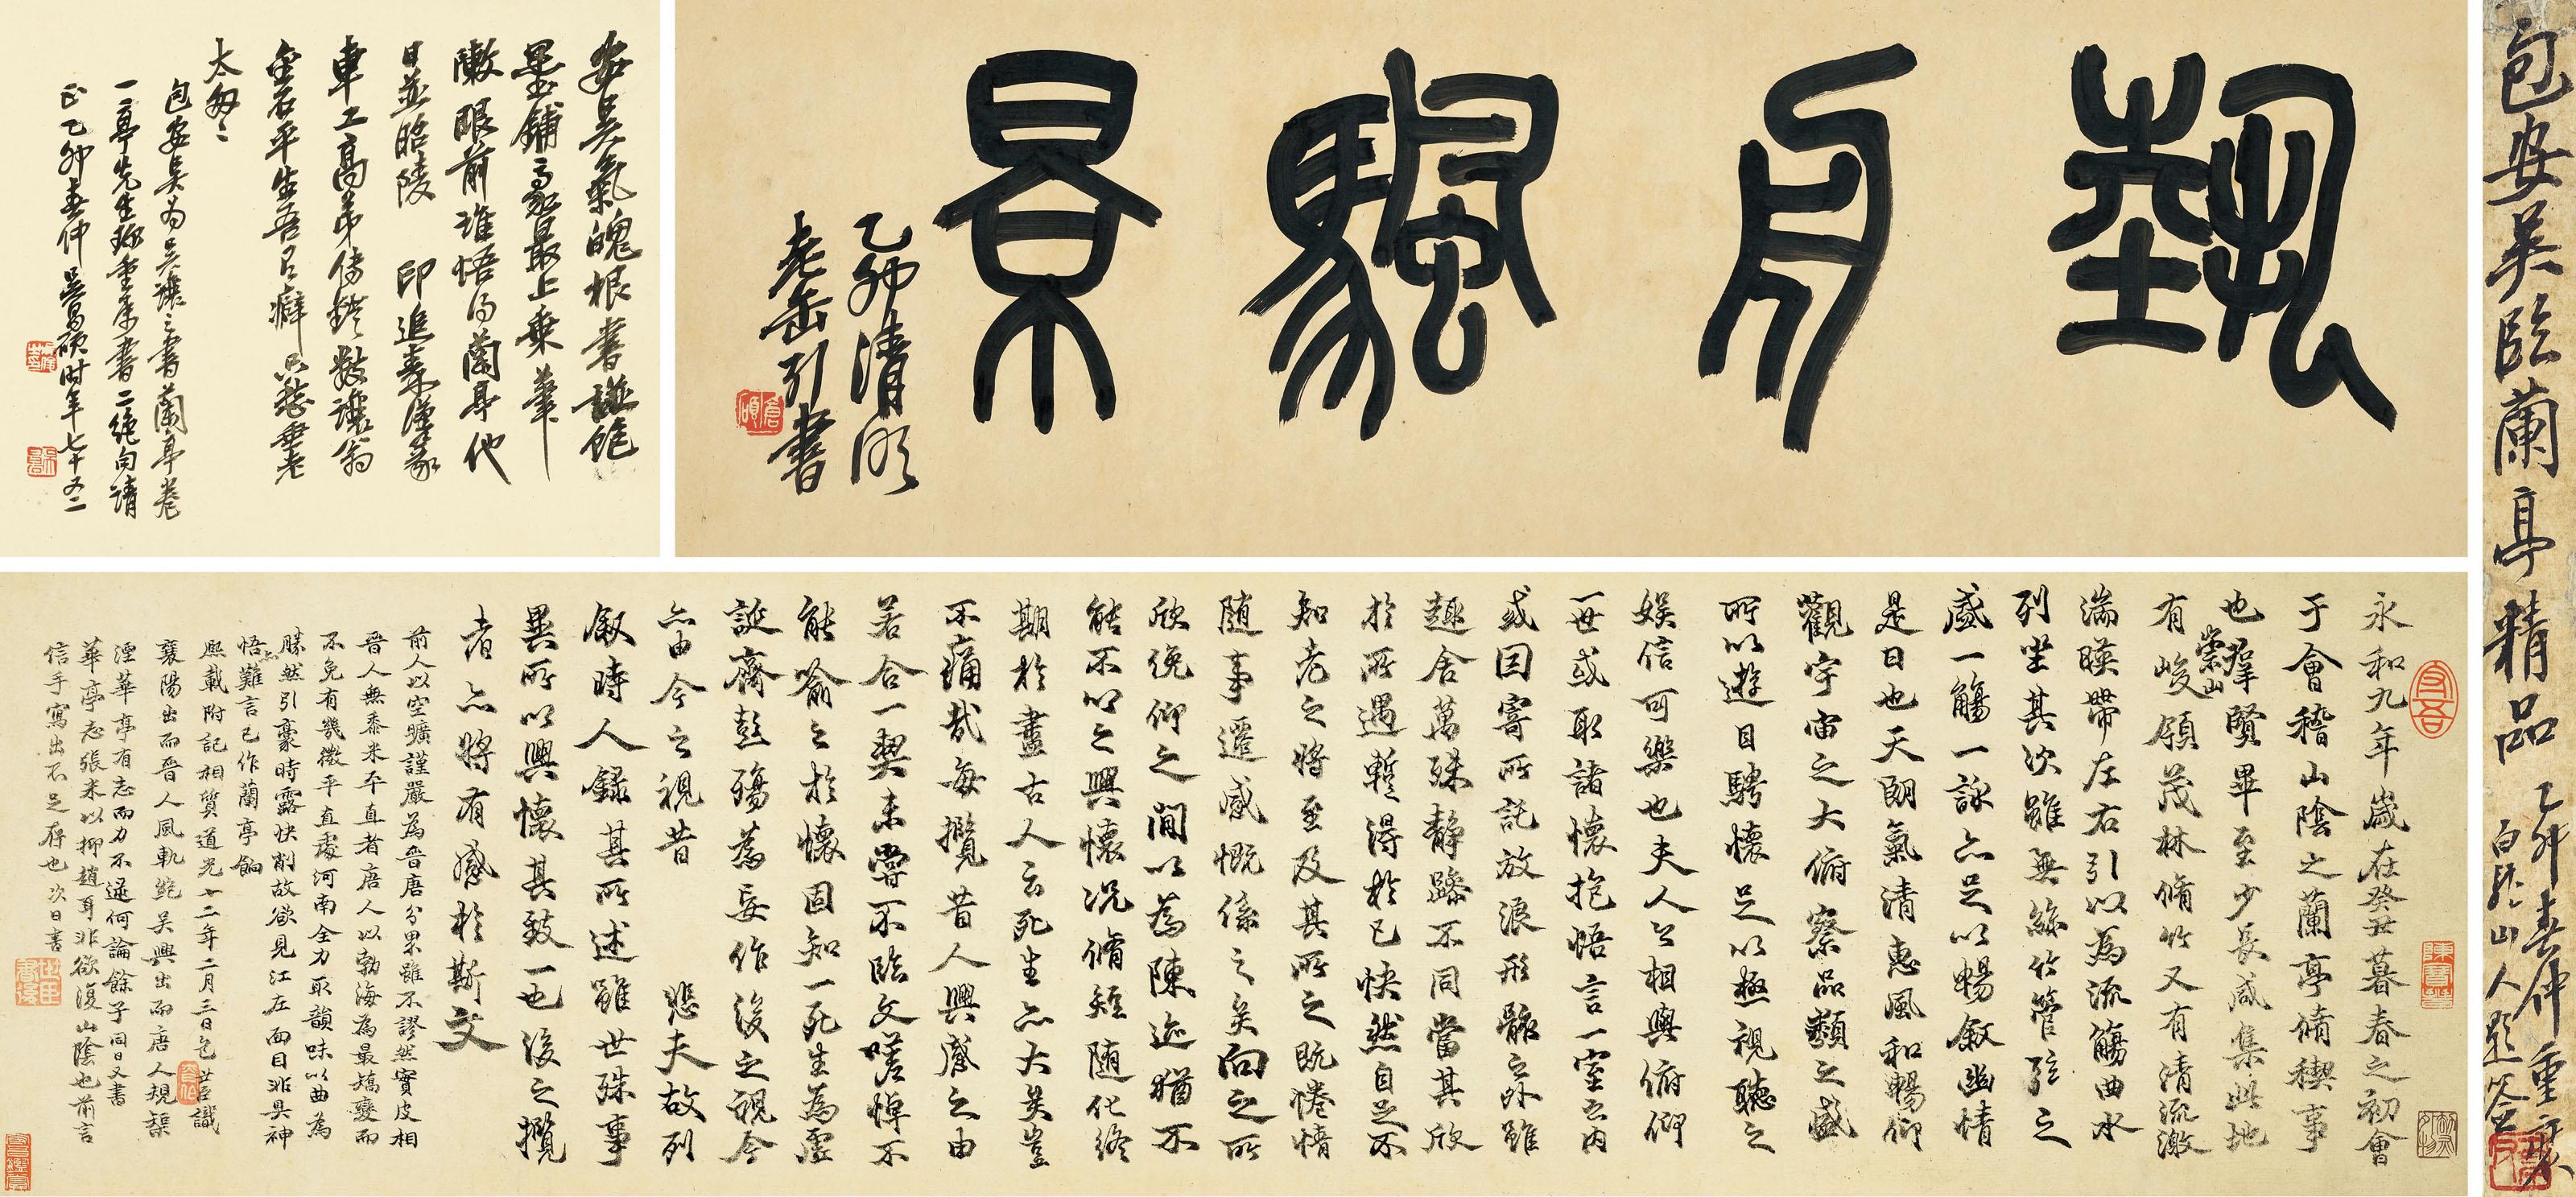 包安吳臨蘭亭精品
乙卯春仲重裝
白龍山人題簽
埶舟颿景
乙卯清明
老缶引書
安吳氣魄根書譜飽
墨鋪豪最上乘筆
陳眼前誰悟得蘭亭他
日並昭陵 印追秦漢篆
車工高弟傳錢數讓翁
金石平生吾有癖只愁衰老
太匆匆
包安吳為吳讓之書蘭亭卷
一亭先生珍重屬書二絕句請
正乙卯春仲吳昌碩時年七十又二
永和九年歲在癸丑暮春之初會
于會稽山陰之蘭亭脩禊事
也羣賢畢至少長咸集此地
有崇山峻領茂林脩竹又有清流激
湍暎帶左右引以為流觴曲水
列坐其次雖無絲竹管弦之
盛一觴一詠亦足以暢敘幽情
是日也天朗氣清惠風和暢仰
觀宇宙之大俯察品類之盛
所以遊目騁懷足以極視聽之
娛信可樂也夫人之相與俯仰
一世或取諸懷抱悟言一室之內
或因寄所託放浪形骸之外雖
趣舍萬殊靜躁不同當其欣
於所遇蹔得於己快然自足不
知老之將至及其所之既惓情
隨事遷感慨係之矣向之所
欣俛仰之間以為陳迹猶不
能不以之興懷況脩短隨化終
期於盡古人云死生亦大矣豈
不痛哉每攬昔人興感之由
若合一契未嘗不臨文嗟悼不
能喻之於懷固知一死生為虛
誕齊彭殤為妄作後之視今
亦由今之視昔 悲夫故列
敘時人錄其所述雖世殊事
異所以興懷其致一也後之攬
者亦將有感於斯文
前人以空曠謹嚴為晉唐分界雖不謬然實皮相
晉人無黍米平直者唐人以勃海為最矯變而
不免有幾微平直處河南全力取韻味以曲為
勝然引豪時露快削故欲見江左面目非具神
悟難言已作蘭亭餉
熙載附記相質道光十二年二月三日包世臣識
襄陽出而晉人風軌絕吳興出而唐人規榘
湮華亭有志而力不逮何論餘子同日又書
華亭志張米以抑趙耳非欲復山陰也前言
信手寫出不足存也 次日書